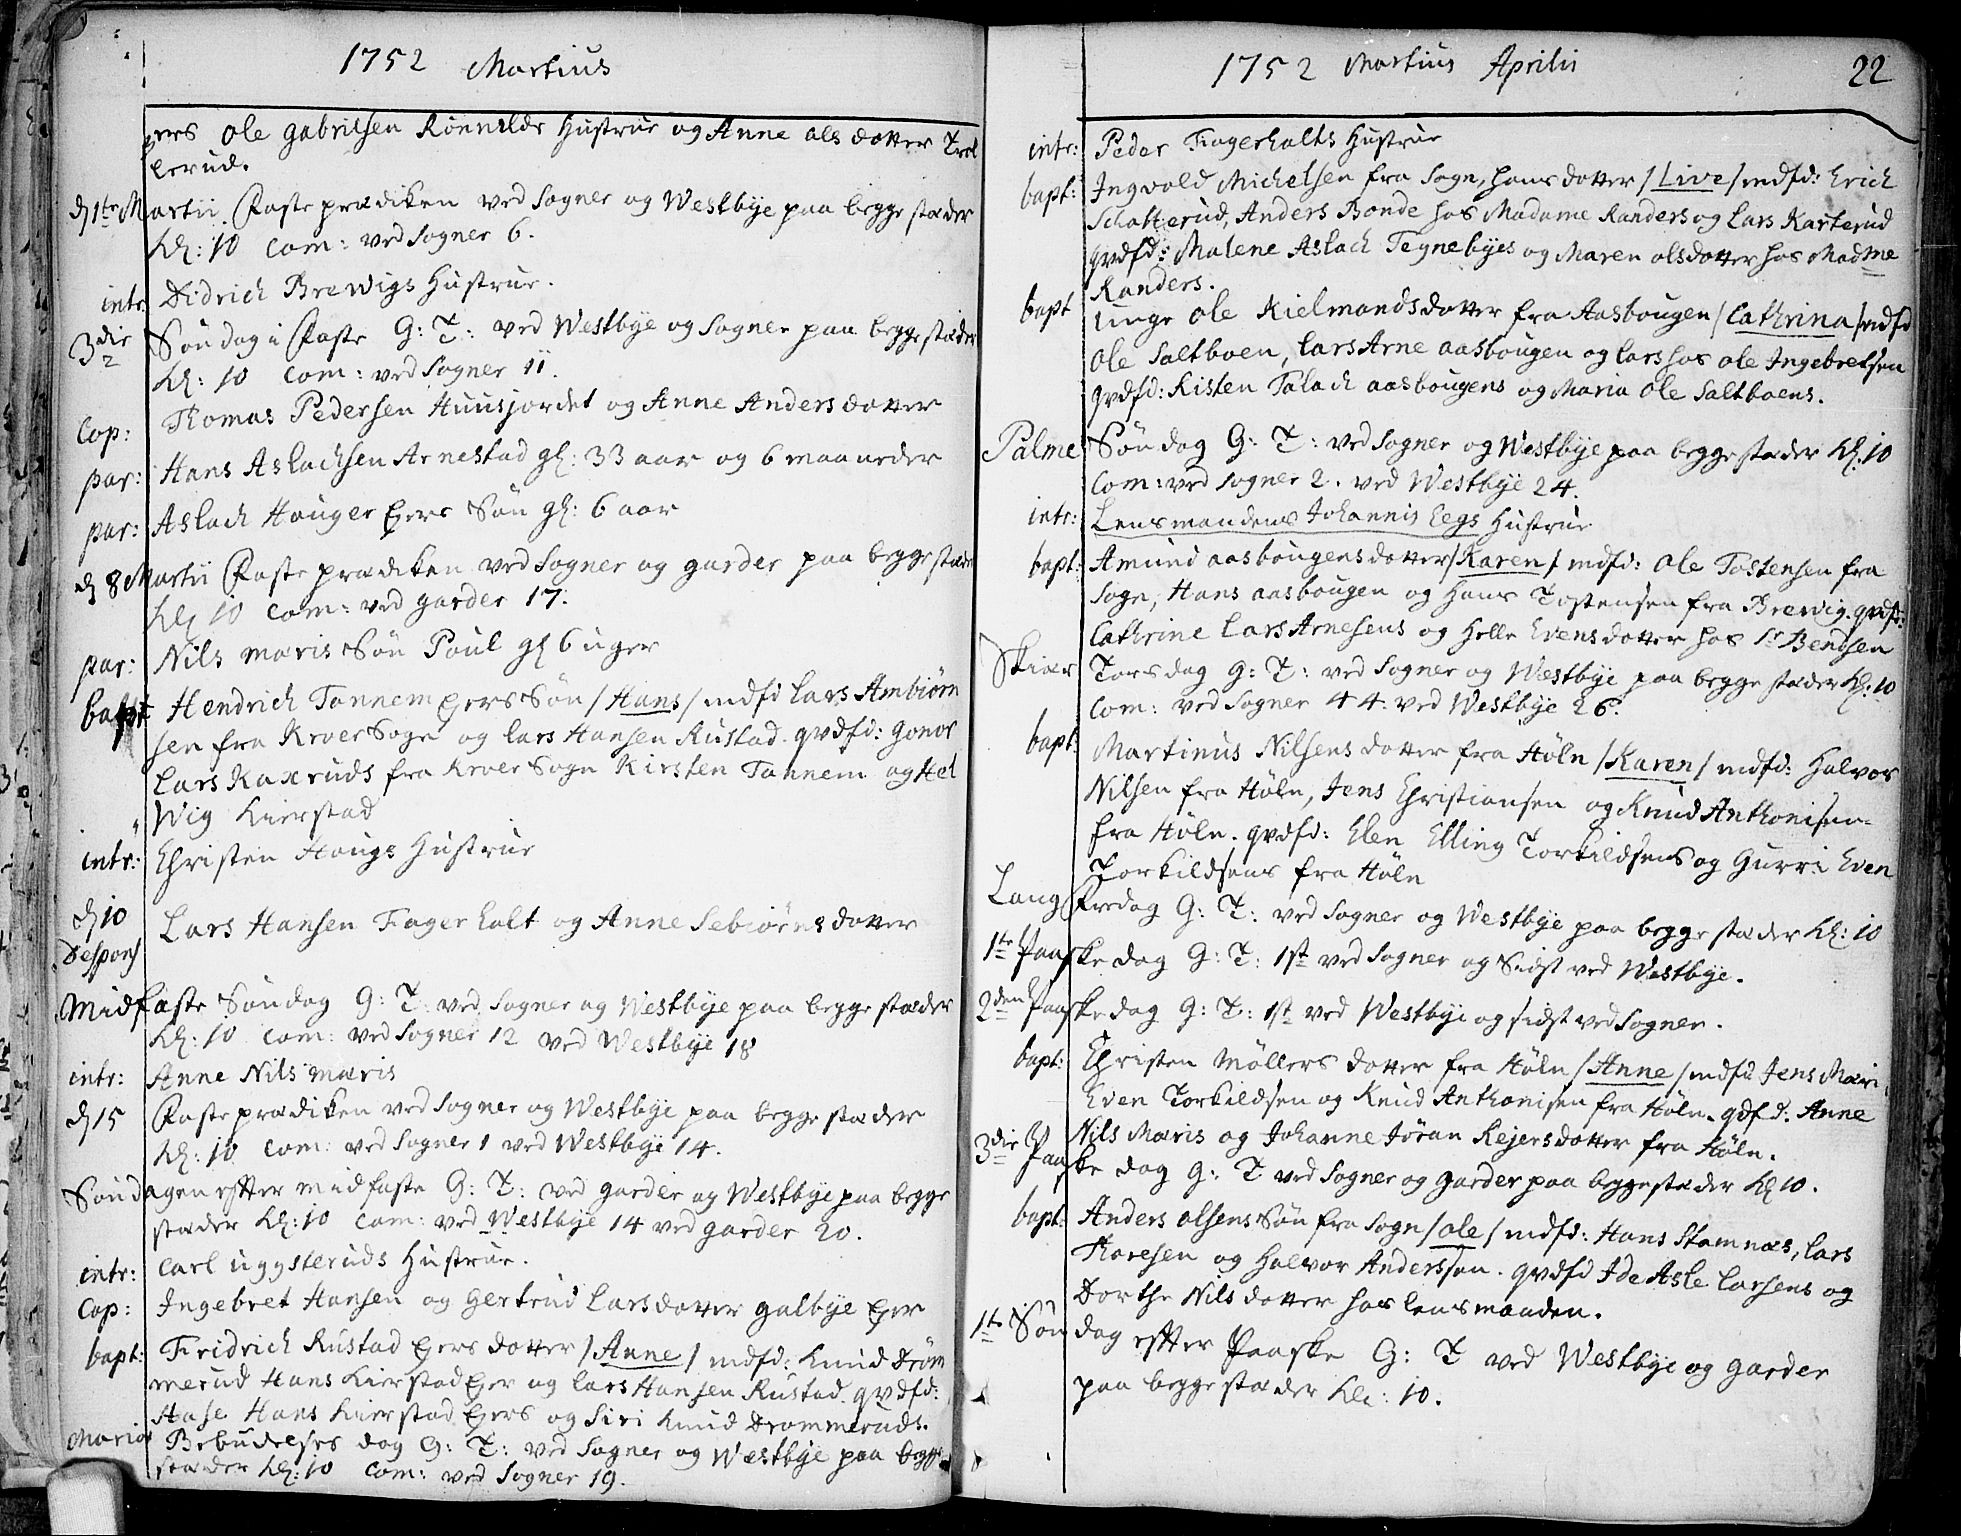 1752 Martius
Ejers Ole Gabrielsen Rönnilds Hustrue og Anne Olsdotter Trol
lerud.
d 1te Martii Fasteprædiken ved Sogner og Westbye paa begge stæder
Kl: 10 Com: ved Sogner 6.
intr: Didrich Brewigs Hustrue.
3die Söndag i Faste G: T: ved Westbye og Sogner paa begge stæder
Kl: 10 Com: ved Sogner 11.
Cop: Thomas Pedersen Huusjordet og Anne Andersdotter
par: Hans Aslachsen Arnestad gl: 33 aar og 6 maaneder
par: Aslach Houger Ejers Sön gl: 6 aar
d 8 Martii Fasteprædiken ved Sogner og garder paa begge stæder
Kl 10 Com: ved garder 17.
par: Nils Mæris Sön Poul gl 6 uger
bapt Hendrich Tannem Ejers Sön /Hans/ mdfd Lars Ambiörn
sen fra Kroer Sogn og Lars Hansen Rustad. qvdfd: Gonor
Lars Kaxruds fra Kroer Sogn Kirsten Tannem og Hel
Wig Kierstad
intr: Christen Hougs Hustrue
d 10
Despons Lars Hansen Fagerholt og Anne Sebiörnsdotter
Midfaste Söndag G: T: ved Sogner og Westbye paa begge stæder
Kl: 10 Com: ved Sogner 12 ved Westbye 18
intr: Anne Nils Mæris
d 15 Fasteprædiken ved Sogner og Westbye paa begge stæder
Kl: 10 Com: ved Sogner 1 ved Westbye 14.
Söndagen efter midfaste G: T: ved garder og Westbye paa begge
stæder Kl: 10 Com: ved Westbye 14 ved garder 20.
intr: Carl Uggsteruds Hustrue.
Cop: Ingebret Hansen og Gertrud Larsdotter galbye Ejer
bapt: Fridrich Rustad Ejers dotter /Anne/ mdfd: Knud Dröm
merud Hans Kierstad Ejer og Lars Hansen Rustad. qvdfd:
Aase Hans Kierstad Ejers og Siri Knud Drömmeruds.
Mariæ Bebudelses dag G: T: ved Sogner og Westbye paa begge
stæder Kl: 10 Com: ved Sogner 19.
1752 Martius Aprilis 22
intr: Peder Fagerholts Hustrue
bapt: Ingvold Michelsen fra Sogn, hans dotter /Live/ mdfd: Erich
Schatterud, Anders Bonde hos Madame Randers og Lars Karterud
qvdfd: Malene Aslach Tegnebyes og Maren Olsdotter hos Madme
Randers.
bapt unge Ole Kielmands dotter fra Aasbougen /Cathrina/ mdfd
Ole Saltboen, Lars Arne Aasbougen og Lars hos Ole Ingebretsen
qvdfd: Kisten Talach Aasbougens og Maria Ole Saltboens.
Palme Söndag G: T: ved Sogner og Westbye paa begge stæder Kl: 10
Com: ved Sogner 2. ved Westbye 24.
intr: Lensmandens Johannis Eegs Hustrue
bapt: Amund Aasbougens dotter /Karen/ mdfd: Ole Tostensen fra
Sogn, Hans Aasbougen og Hans Tostensen fra Brewig. qvdfd:
Cathrine Lars Arnesens og Helle Evensdotter hos Sr Bendsen
Skiær Torsdag G: T: ved Sogner og Westbye paa begge stæder Kl: 10
Com: ved Sogner 44. ved Westbye 26.
bapt: Martinus Nilsens dotter fra Höln /Karen/ mdfd: Halvor
Nilsen fra Höln, Jens Christiansen og Knud Anthonisen
fra Höln. qvdfd: Elen Elling Torkildsens og Gurri Even
Torkildsens fra Höln
Lang Fredag G: T: ved Sogner og Westbye paa begge stæder Kl: 10
1te Paaske dag G: T: 1st ved Sogner og Sidst ved Westbye.
2den Paaske dag G: T: 1st ved Westbye og sidst ved Sogner.
bapt: Christen Möllers dotter fra Höln /Anne/ mdfd Jens Mæri
Even Torkildsen og Knud Anthonisen fra Höln. qdfd: Anne
Nils Mæris og Johanne Jöran Rejersdotter fra Höln.
3die Paaske dag G: T ved Sogner og garder paa begge stæder Kl 10.
bapt: Anders Olsens Sön fra Sogn /Ole/ mdfd: Hans Stamnæs, Lars
Thoresen og Halvor Anderssøn. qvdfd Ide Asle Larsens og
Dorthe Nilsdotter hos lensmanden.
1te Söndag efter Paaske G: T ved Westbye og garder
paa begge stæder Kl: 10.